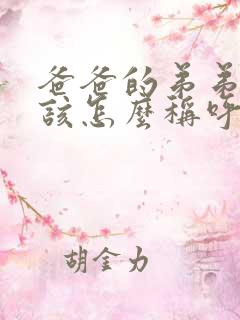 爸爸的弟弟
該怎麼稱呼
胡金力